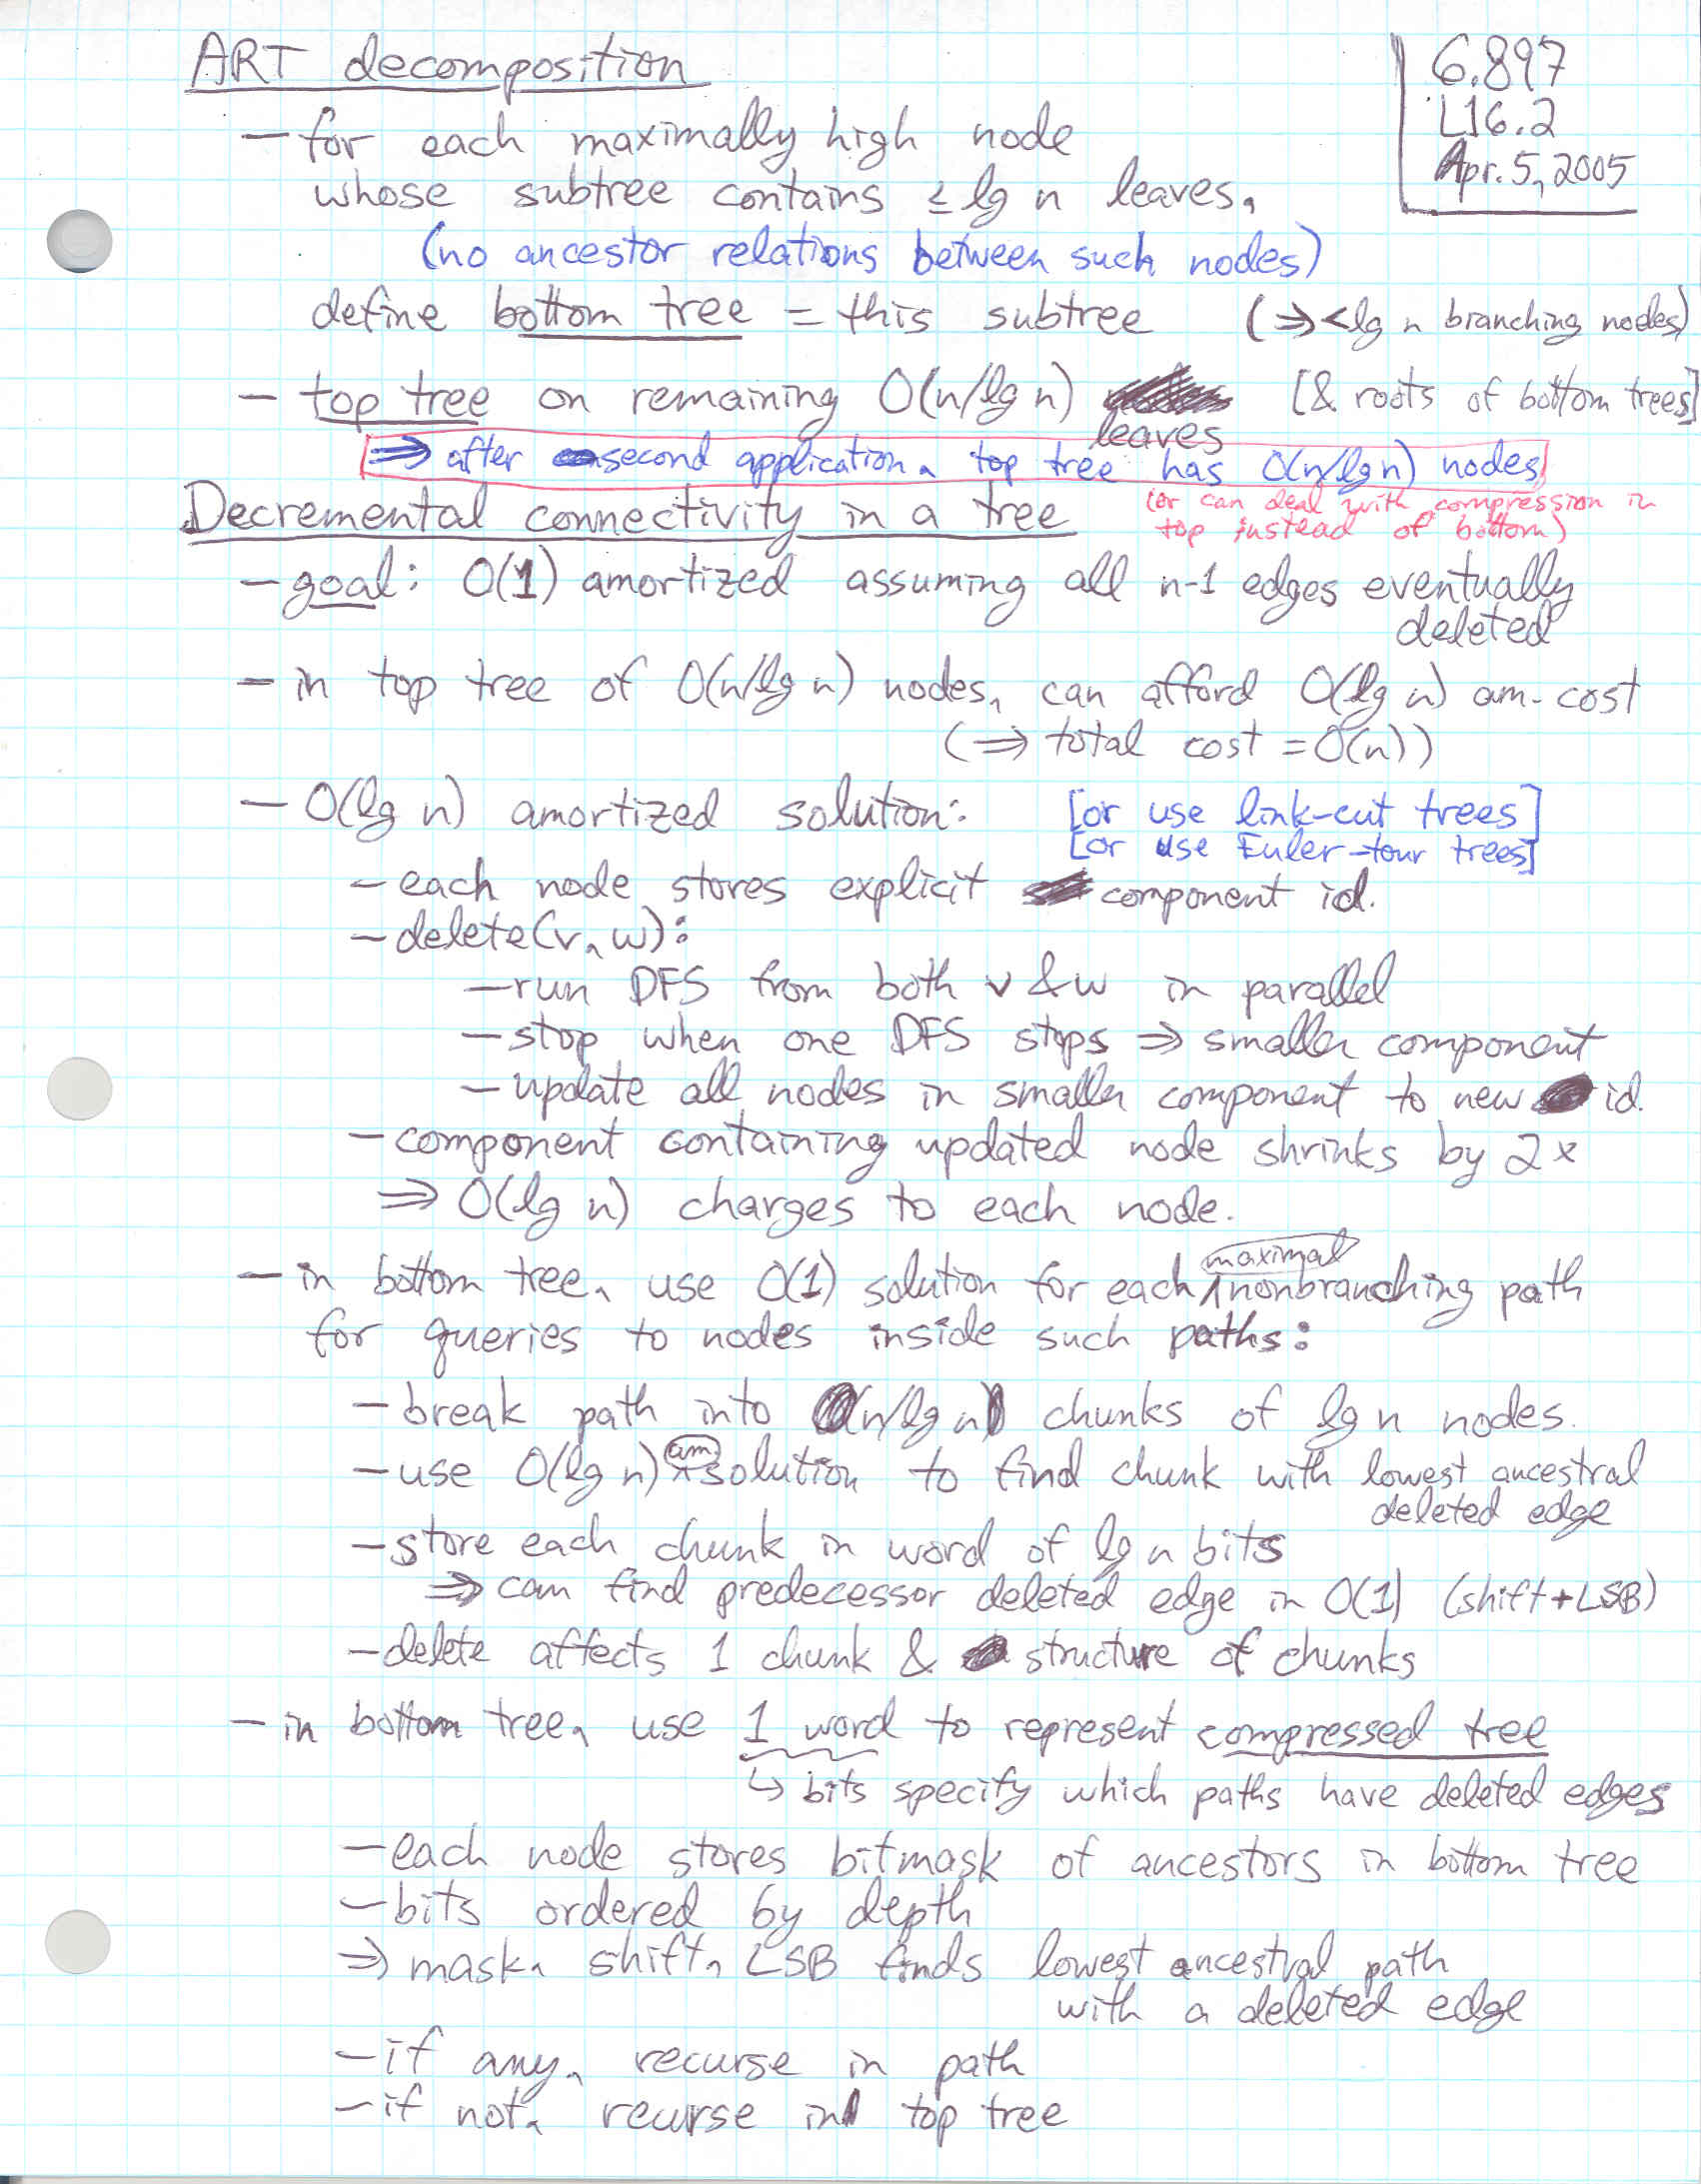 ART decomposition
6.897
L16.2
Apr. 5, 2005
– for each maximally high node
whose subtree contains ≤ lg n leaves,
(no ancestor relations between such nodes)
define bottom tree = this subtree (⇒ < lg n branching nodes)
– top tree on remaining O(n/lg n) leaves [& roots of bottom trees]
⇒ after second application, top tree has O(n/lg n) nodes
(or can deal with compression in
top instead of bottom)
Decremental connectivity in a tree
– goal: O(1) amortized assuming all n-1 edges eventually
deleted
– in top tree of O(n/lg n) nodes, can afford O(lg n) am. cost
(⇒ total cost = O(n))
– O(lg n) amortized solution: [or use link-cut trees]
[or use Euler-tour trees]
– each node stores explicit component id.
– delete(v, w):
– run DFS from both v & w in parallel
– stop when one DFS stops ⇒ smaller component
– update all nodes in smaller component to new id.
– component containing updated node shrinks by 2x
⇒ O(lg n) charges to each node.
– in bottom tree, use O(1) solution for each maximal nonbranching path
for queries to nodes inside such paths:
– break path into n/lg n chunks of lg n nodes.
– use O(lg n) am. solution to find chunk with lowest ancestral
deleted edge
– store each chunk in word of lg n bits
⇒ can find predecessor deleted edge in O(1) (shift + LSB)
– delete affects 1 chunk & structure of chunks
– in bottom tree, use 1 word to represent compressed tree
↳ bits specify which paths have deleted edges
– each node stores bitmask of ancestors in bottom tree
– bits ordered by depth
⇒ mask, shift, LSB finds lowest ancestral path
with a deleted edge
– if any, recurse in path
– if not, recurse in top tree